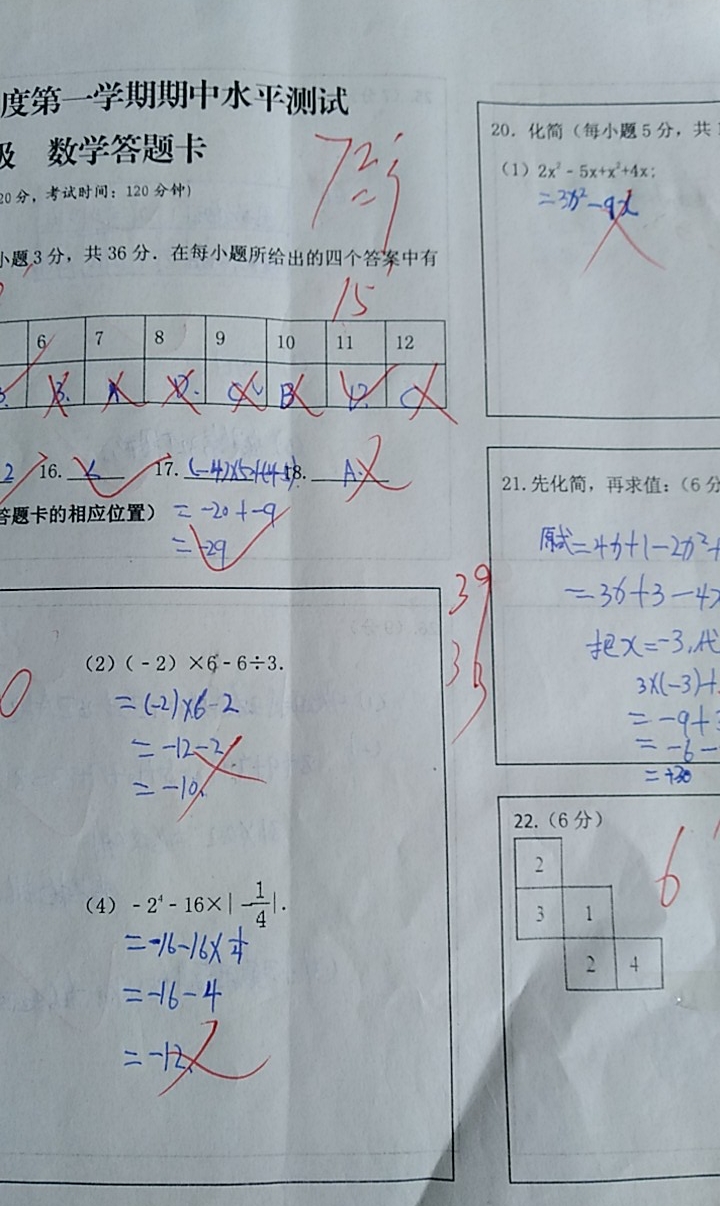 度第一学期期中水平测试
级 数学答题卡
72分
20分，考试时间：120分钟）
小题3分，共36分．在每小题所给出的四个答案中有
15
6 7 8 9 10 11 12
B. A D. C B D. C
2 16. 17. (-4)×5+(4-5). 18. A.
答题卡的相应位置） = -20 + -9
= -29
39
33
0
（2）（-2）×6-6÷3．
= (-2)×6-2
= -12-2
= -10.
（4）-2⁴-16×|-1/4|．
= -16-16×1/4
= -16-4
= -12.
20．化简（每小题5分，共
（1）2x²-5x+x²+4x；
= 3x²-9x
21.先化简，再求值：（6分
原式=4x+1-2x²+
= 3x+3-4x
把x=-3,代
3×(-3)+
= -9+
= -6-
= +30
22.（6分）
6
2
3 1
2 4